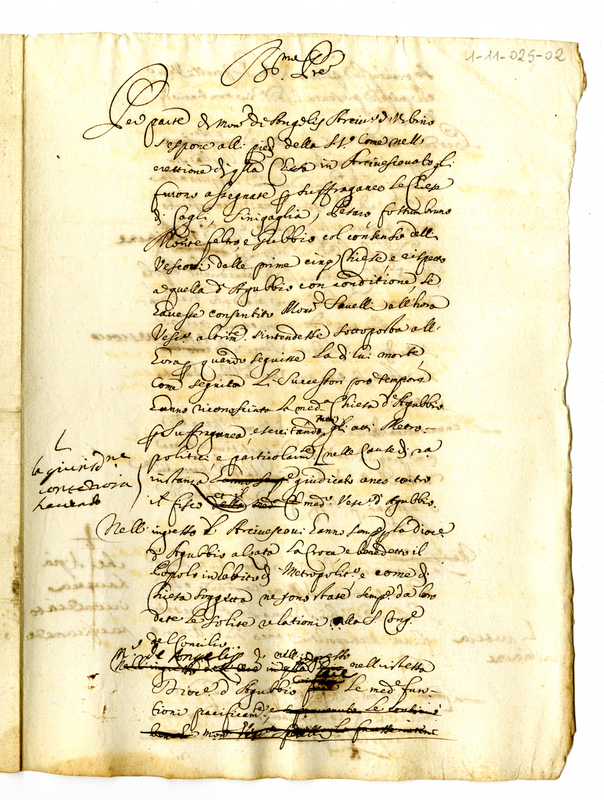 1-11-025-02
B.mo P.re
Per parte di Mons.r de Angelis Arciv.o d'Urbino
s'espone alli piedi della S.tà Come nell'
erettione di q.lla Chiesa in Arcivescovato gli
furono assegnate p Suffraganee le Chiese
di Cagli, Sinigaglia, Pesaro, Fossombruno
Monte feltro e Gubbio col consenso delli
Vescovi delle prime cinq Chiese e rispetto
a quella d'Agubbio con conditione, se
havesse consentito Mons.r Savelli all'hora
Vesc.o altrim.ti s'intendesse sottoposta all
hora quando seguisse la di lui morte,
Come seguita li Successori pro tempore
hanno riconosciuta la med.a Chiesa d'Agubbio
p Suffraganea, esercitando gli atti Metro-
politici, e particolarm.te nelle Cause di p.a
instanza giudicato anco contro
il fisco med.o Vesc.o d'Agubbio.
la giurisd.ne
contentiosa
havendo
Nell'ingresso gl'Arcivescovi hanno semp.e p la Dioc.e
d'Agubbio alzata la Croce e benedetto il
Popolo in habito di Metropolit.o e come di
Chiesa soggetta ne sono state semp.e da loro
date le solite relationi alla S. Cong.e
del Concilio
M.r de Angelis nella visita
Dioc.e d'Agubbio le med.e fun-
tioni pacificam.te